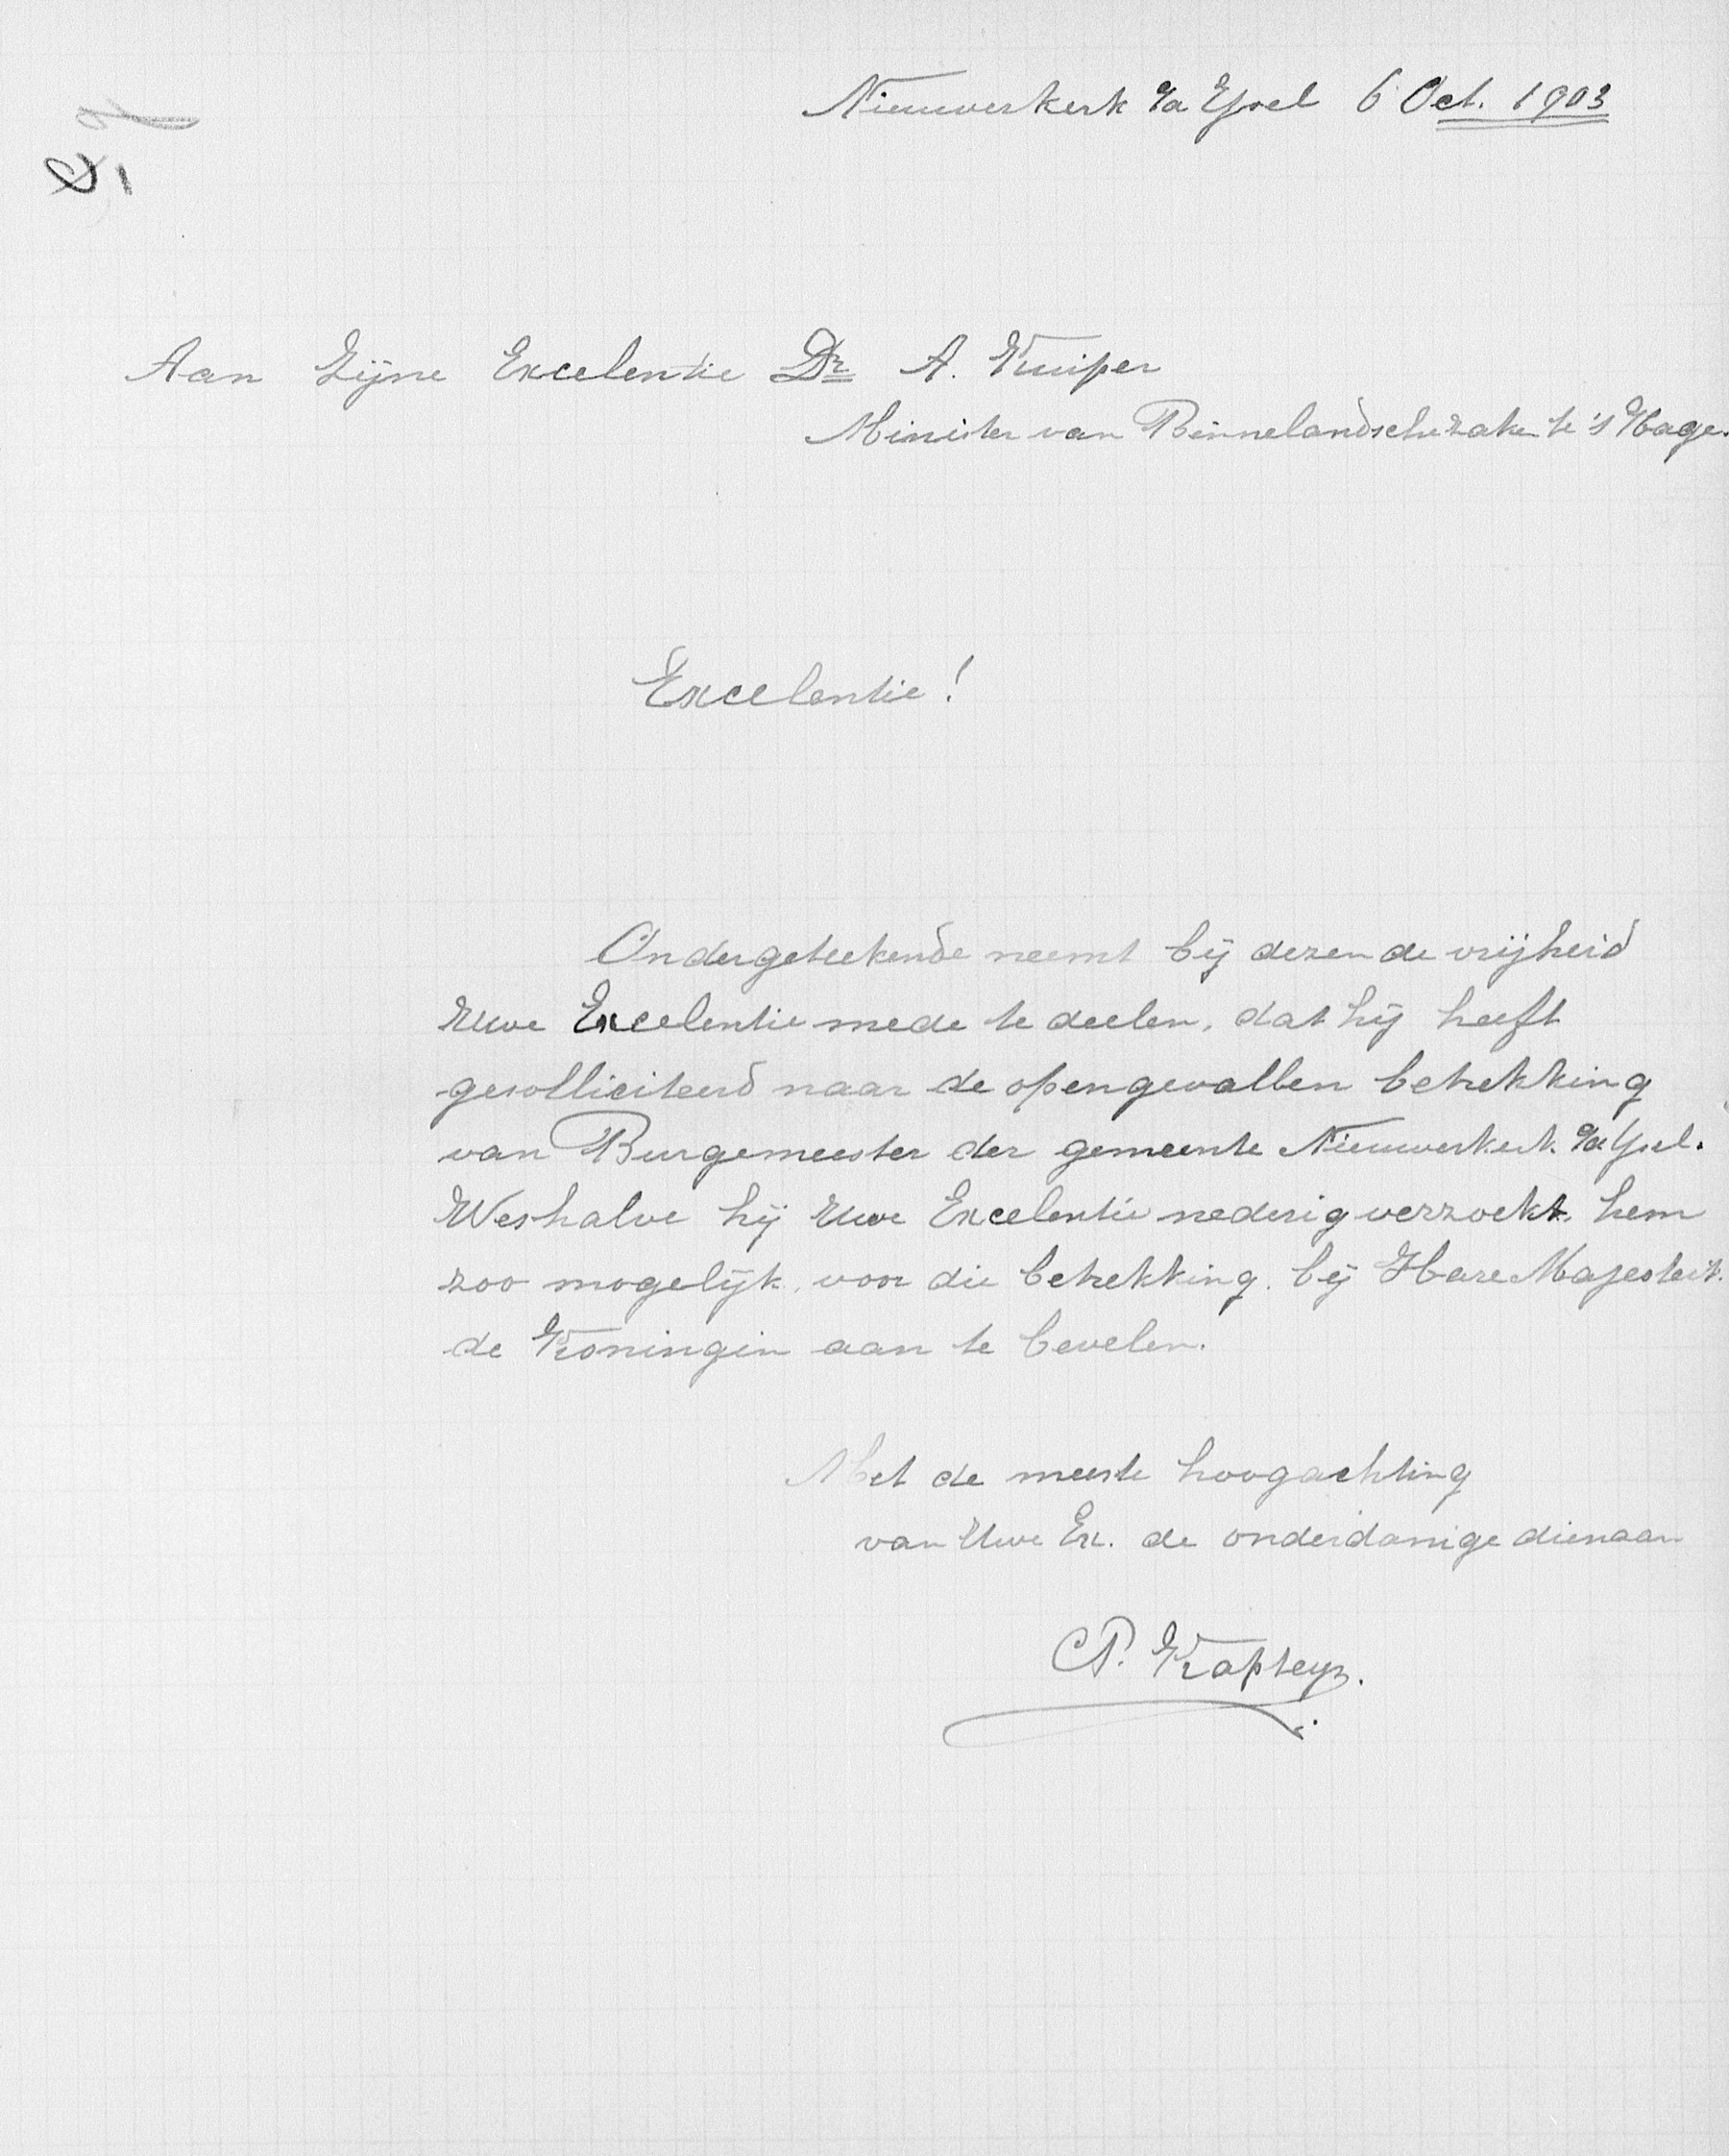 Nieuwerkerk a/d IJssel 6 Oct. 1903
Aan Zijne Excelentie Dr A. Kuiper
Minister van Binnelandschezaken te 's Hage.
Excelentie!
Ondergeteekende neemt bij dezen de vrijheid
Uwe Excelentie mede te deelen, dat hij heeft
gesolliciteerd naar de opengevallen betrekking
van Burgemeester der gemeente Nieuwerkerk a/d IJsel.
Weshalve hij Uwe Excelentie nederig verzoekt, hem
zoo mogelijk, voor die betrekking, bij Hare Majesteit.
de Koningin aan te bevelen.
Met de meeste hoogachting
van Uwe Ex. de onderdanige dienaar
P. Kapteyn.